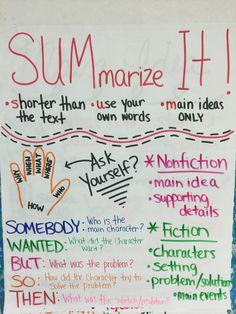 SUMmarize It!
• shorter than the text
• use your own words
• main ideas ONLY
WHY
WHEN
WHAT
WHERE
WHO
HOW
Ask Yourself?
* Nonfiction
• main idea
• supporting details
* Fiction
• characters
• setting
• problem/solution
• main events
SOMEBODY: Who is the main character?
WANTED: What did the character want?
BUT: What was the problem?
SO: How did the character try to solve the problem?
THEN: What was the solution/resolution?